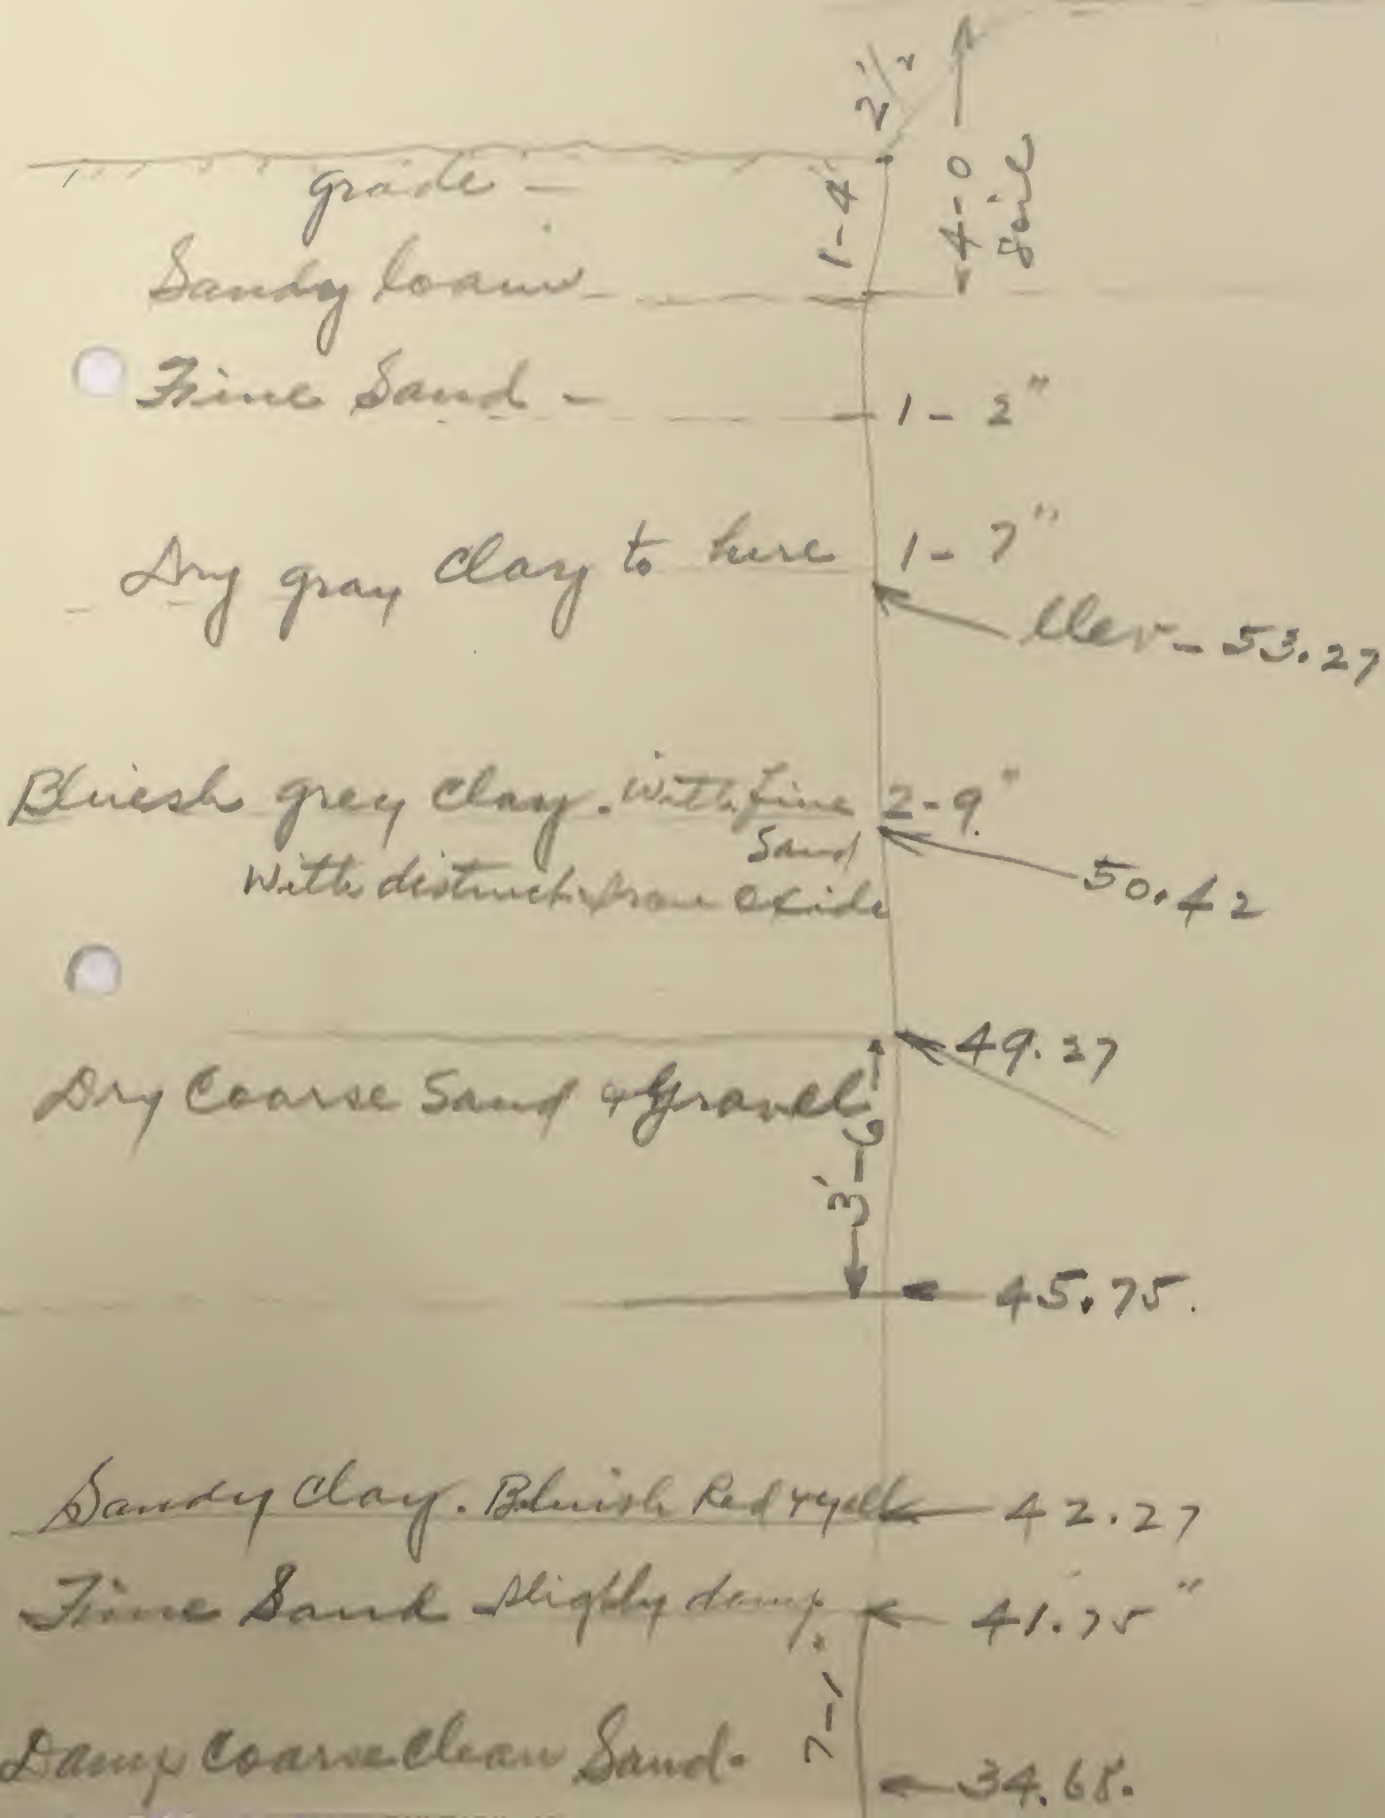 2 1/2
grade -
1-4"
4-0
Soil
Sandy loam
Fine Sand - 1 - 2"
Dry gray clay to here 1 - 7"
Elev - 53.27
Bluesh grey clay. With fine Sand 2-9"
50.42
With distinct iron oxide
49.27
Dry Coarse Sand & Gravel
3'-6
45.75.
Sandy Clay. Bluish Red & yell 42.27
Fine Sand slighly damp. 41.75"
7-1
Damp Coarse Clean Sand. 34.68.